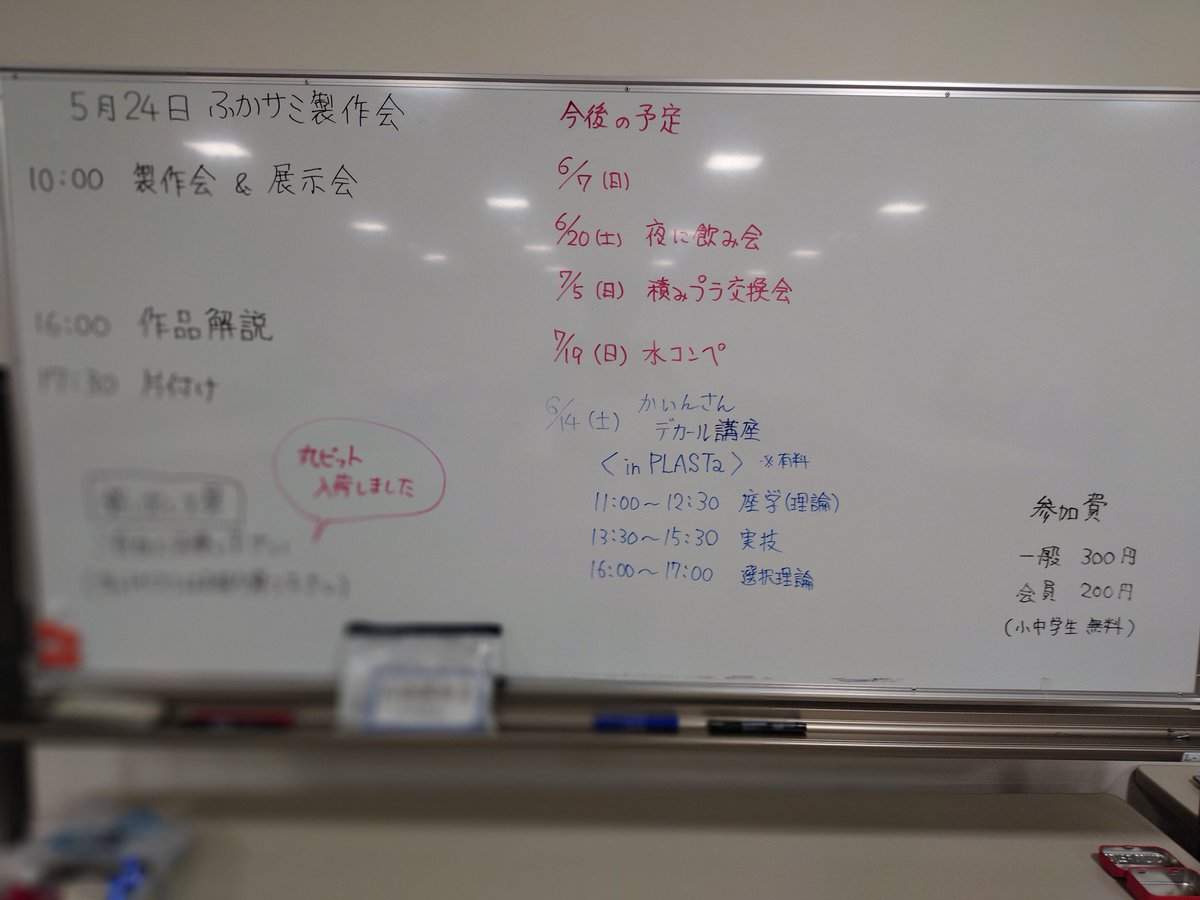 5月24日 ふかサミ製作会
10:00 製作会 & 展示会
16:00 作品解説
17:30 片付け
丸ピット
入荷しました
今後の予定
6/7(日)
6/20(土) 夜に飲み会
7/5(日) 積みプラ交換会
7/19(日) 水コンペ
6/14(土) かいんさん
デカール講座
〈in PLASTa〉 ※有料
11:00〜12:30 座学(理論)
13:30〜15:30 実技
16:00〜17:00 選択理論
参加費
一般 300円
会員 200円
(小中学生 無料)